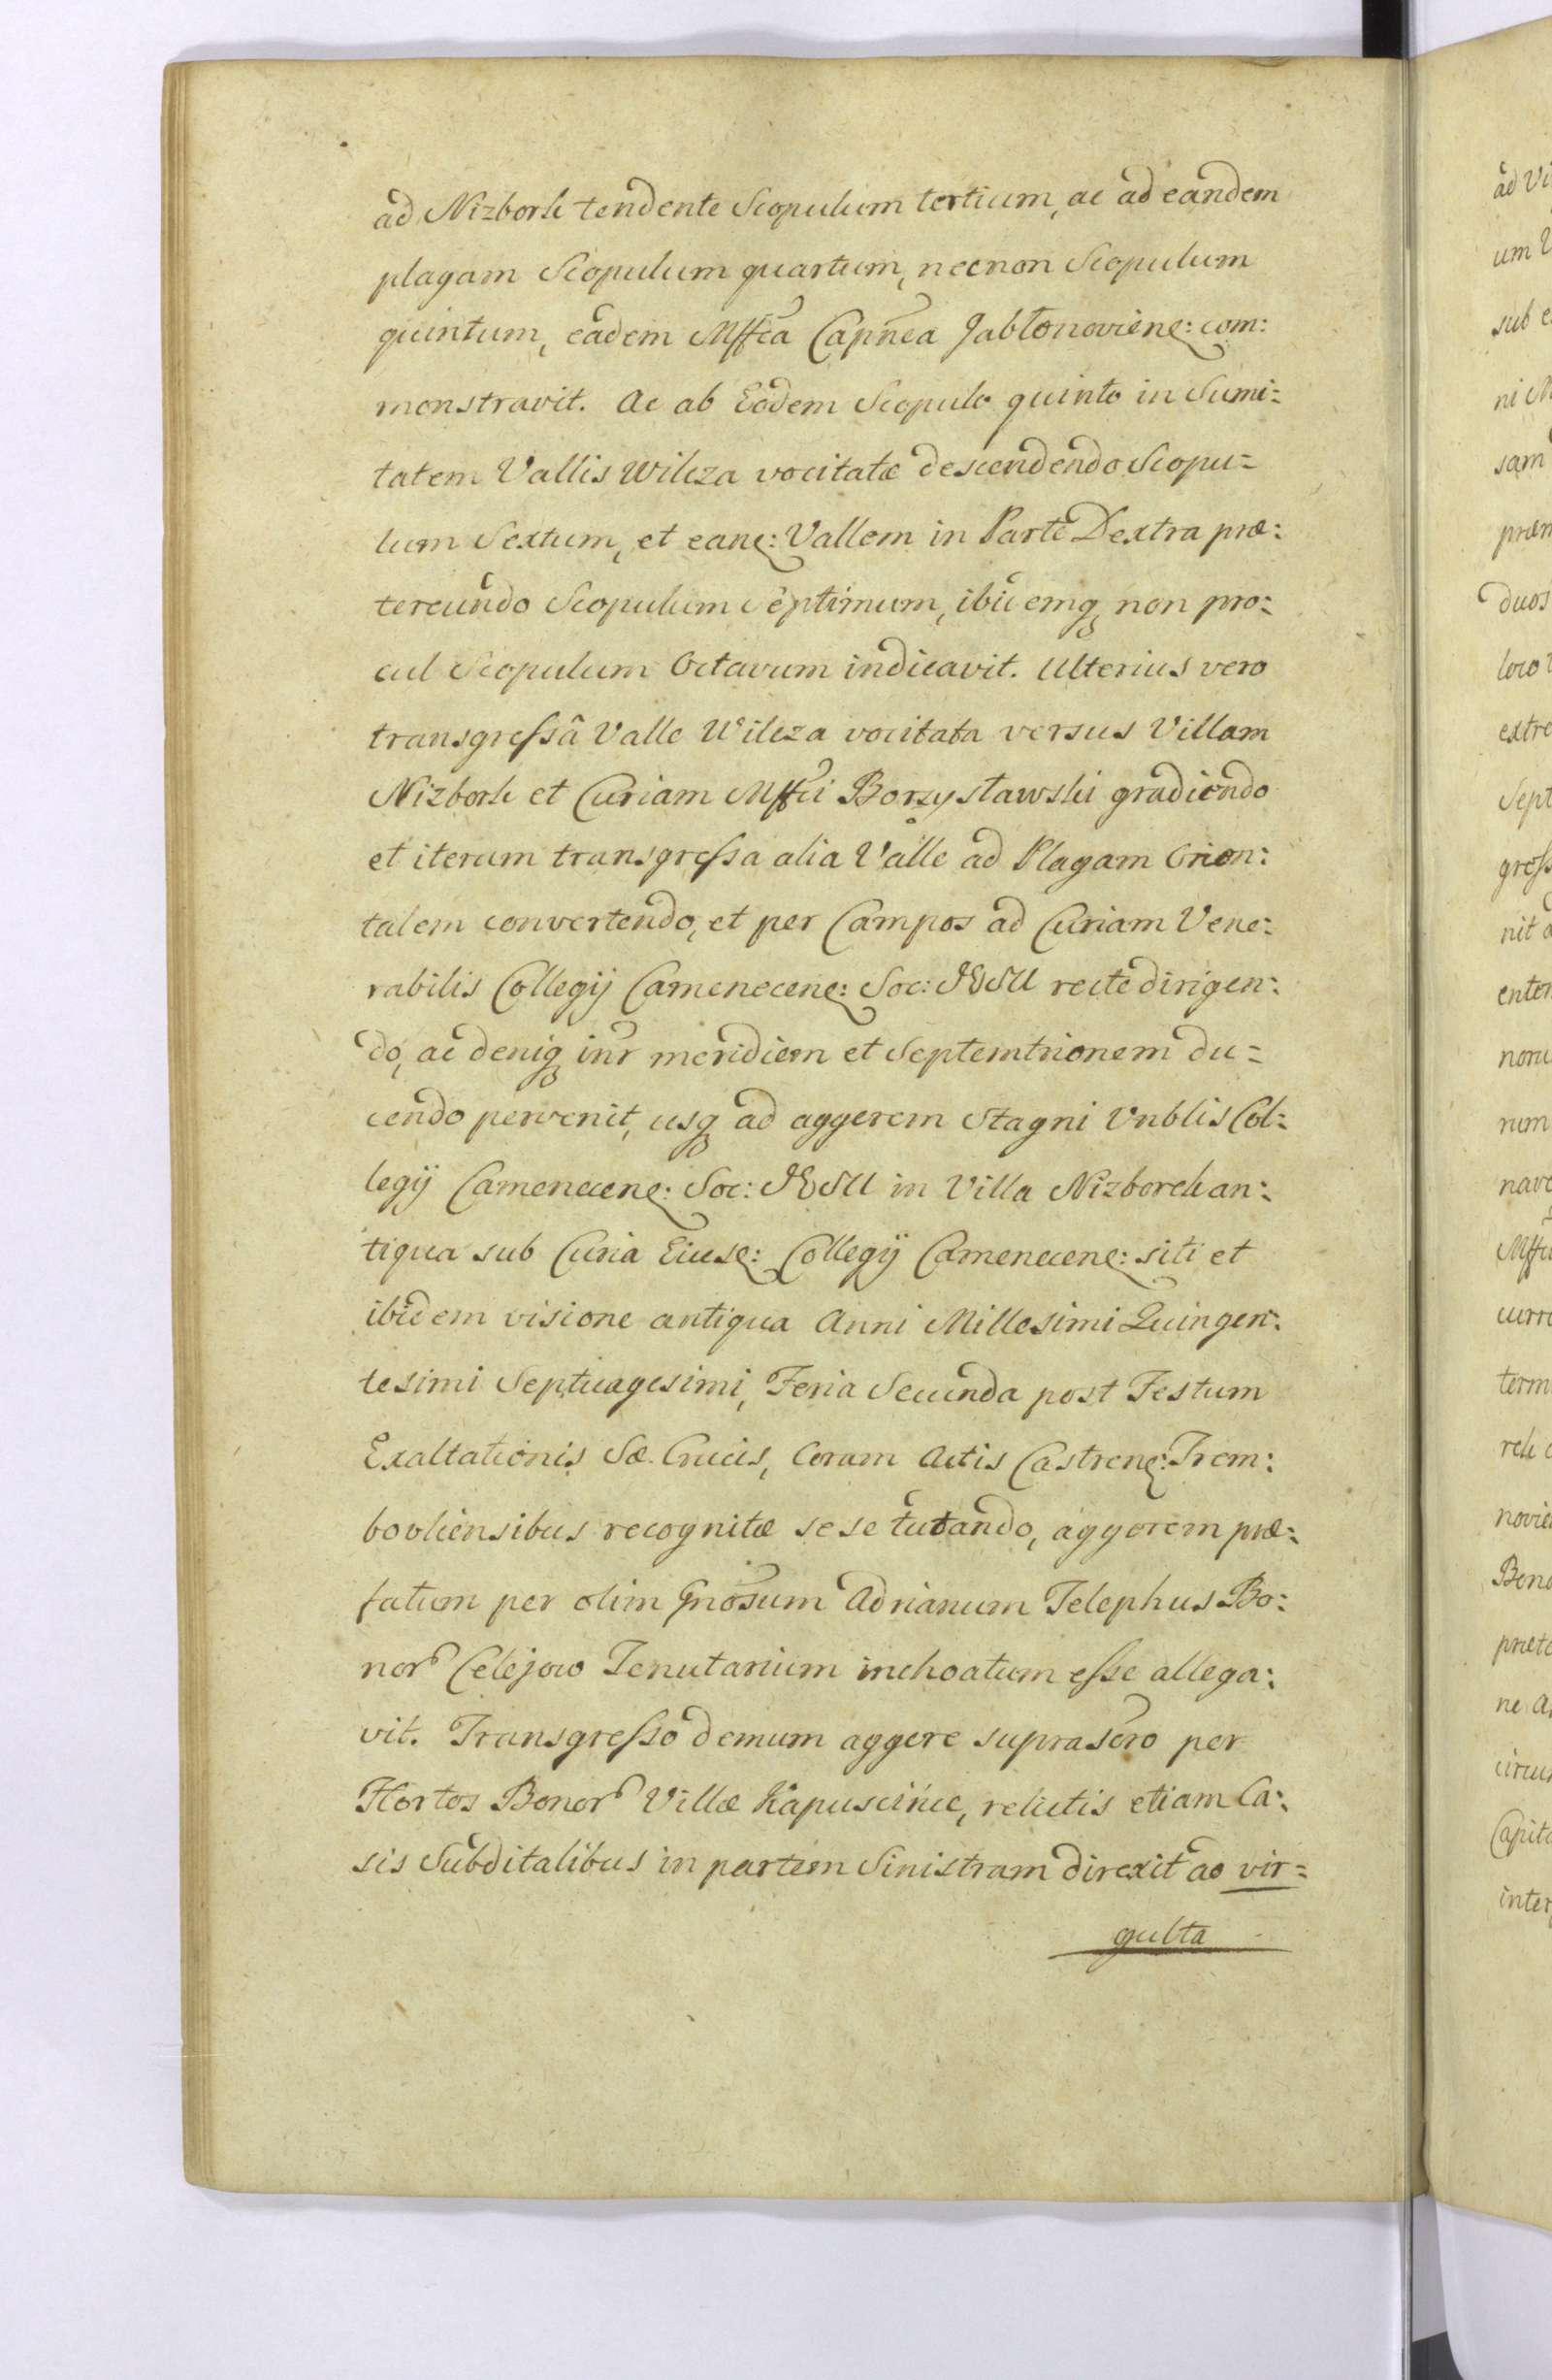 ad Nizbork tendente Scopulum tertium, ac ad eandem
plagam Scopulum quartum, necnon Scopulum
quintum, eadem Mffca Capnea Jabłonoviene: com:
monstravit. Ac ab Eodem Scopulo quinto in Sumi=
tatem Vallis Wilcza vocitatæ descendendo Scopu=
lum Sextum, et eanq: Vallem in Parte Dextra præ:
tereundo Scopulum Septimum, ibidemq, non pro:
cul Scopulum Octavum indicavit. Ulterius vero
transgressâ Valle Wilcza vocitata versus Villam
Nizbork et Curiam Mffci Borzysławski gradiendo
et iterum transgressa alia Valle ad Plagam Orien:
talem convertendo, et per Campos ad Curiam Vene:
rabilis Collegij Camenecene: Soc: JESU recte dirigen:
do, ac deniq inr meridiem et Septemtrionem du=
cendo pervenit, usq ad aggerem Stagni Vnblis Col:
legij Camenecene: Soc: JESU in Villa Nizborek an:
tiqua sub Curia Eiusq: Collegij Camenecene: siti et
ibidem visione antiqua Anni Millesimi Quingen:
tesimi Septuagesimi, Feria Secunda post Festum
Exaltationis Sæ. Crucis, Coram Actis Castrene: Trem:
bovliensibus recognitæ sese tutando, aggerem præ:
fatum per olim Gnosum Adrianum Telephus Bo:
nor Celejow Tenutarium inchoatum esse allega:
vit. Transgresso demum aggere suprasero per
Hortos Bonor Villæ Kapuscińce, relictis etiam Ca:
sis Subditalibus in partem Sinistram direxit ad vir=
gulta
ad Vi
um V
sub e
ni M
sam
præm
duos
loco
extre
Sept
gress
nit a
enten
noru
num
nave
Mffci
curre
term
rek
novie
Bono
præte
ne A
circu
Capita
inter